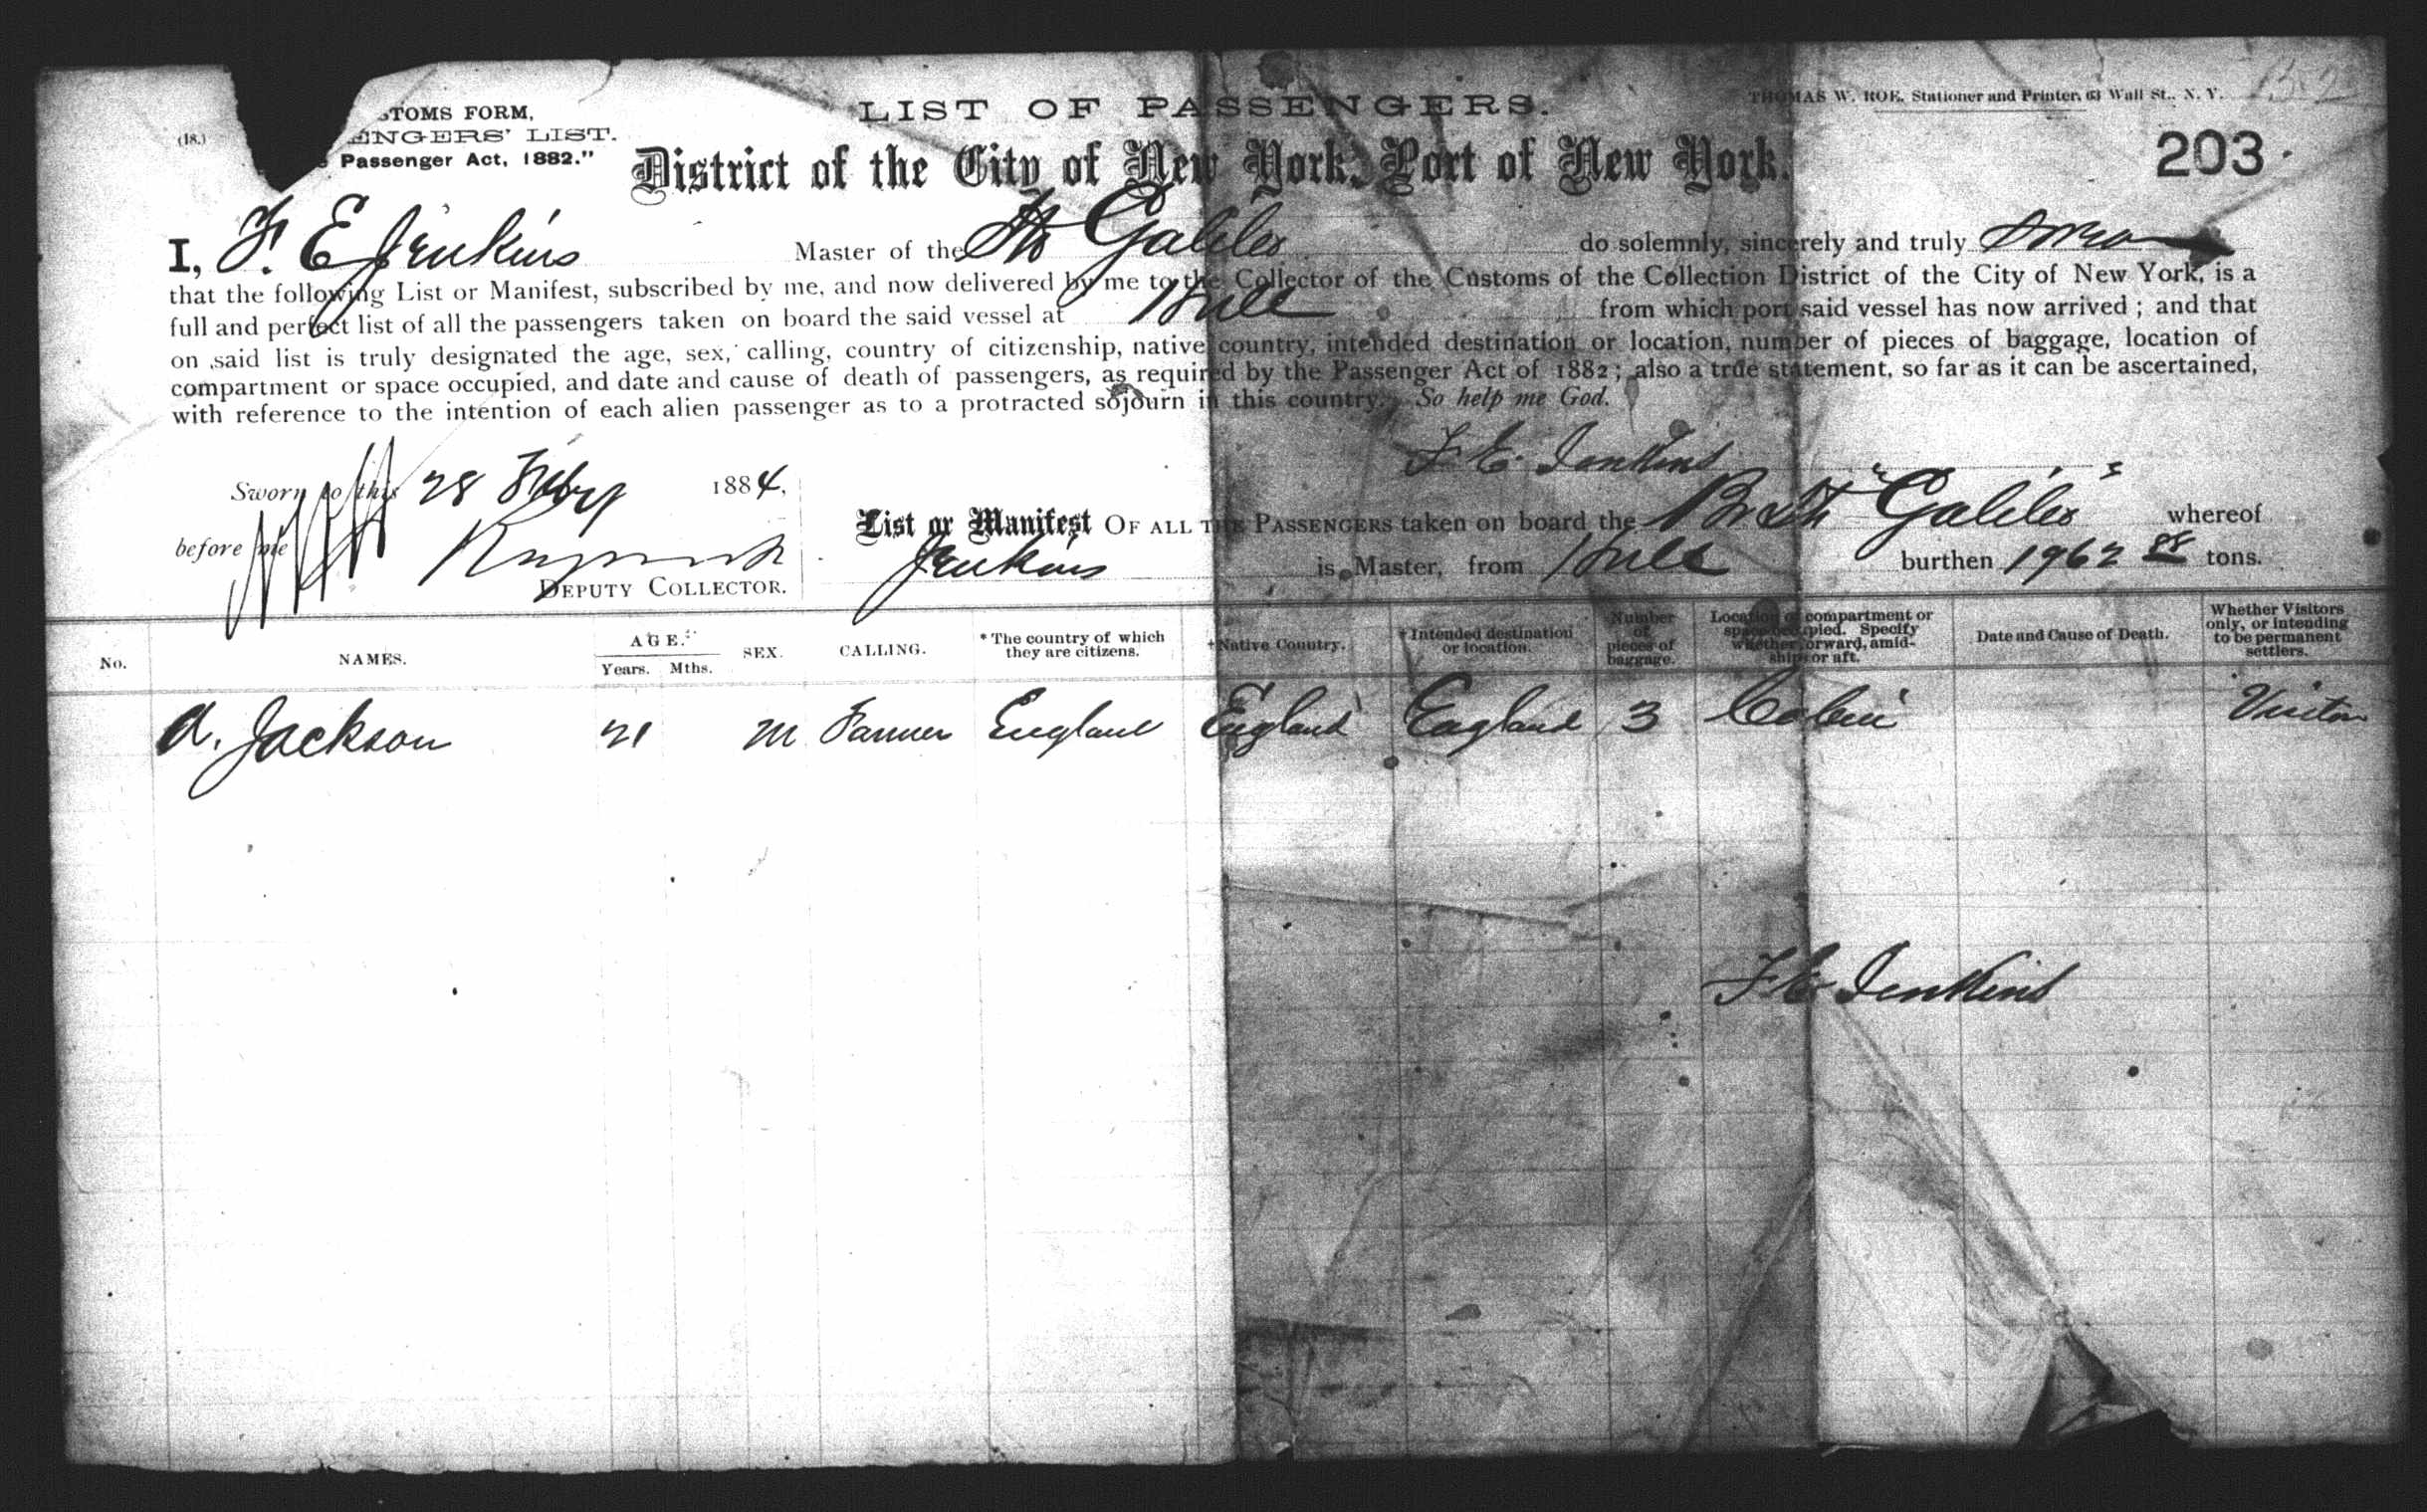 LIST OF PASSENGERS.
THOMAS W. ROE, Stationer and Printer, 63 Wall St., N. Y.
(18.)
TOMS FORM,
ENGERS' LIST.
Passenger Act, 1882."
District of the City of New York, Port of New York.
203
I, F. E Jenkins Master of the Str Galileo do solemnly, sincerely and truly swear
that the following List or Manifest, subscribed by me, and now delivered by me to the Collector of the Customs of the Collection District of the City of New York, is a
full and perfect list of all the passengers taken on board the said vessel at Hull from which port said vessel has now arrived; and that
on said list is truly designated the age, sex, calling, country of citizenship, native country, intended destination or location, number of pieces of baggage, location of
compartment or space occupied, and date and cause of death of passengers, as required by the Passenger Act of 1882; also a true statement, so far as it can be ascertained,
with reference to the intention of each alien passenger as to a protracted sojourn in this country. So help me God.
F E Jenkins
Sworn to this 28 Feby 1884,
before me
DEPUTY COLLECTOR.
List or Manifest OF ALL THE PASSENGERS taken on board the Br Str "Galileo" whereof
Jenkins is Master, from Hull burthen 1962 88 tons.
No. NAMES. AGE. Years. Mths. SEX. CALLING. * The country of which they are citizens. + Native Country. + Intended destination or location. Number of pieces of baggage. Location of compartment or space occupied. Specify whether forward, amidships or aft. Date and Cause of Death. Whether Visitors only, or intending to be permanent settlers.
A. Jackson 21 M Farmer England England England 3 Cabin Visitor
F E Jenkins